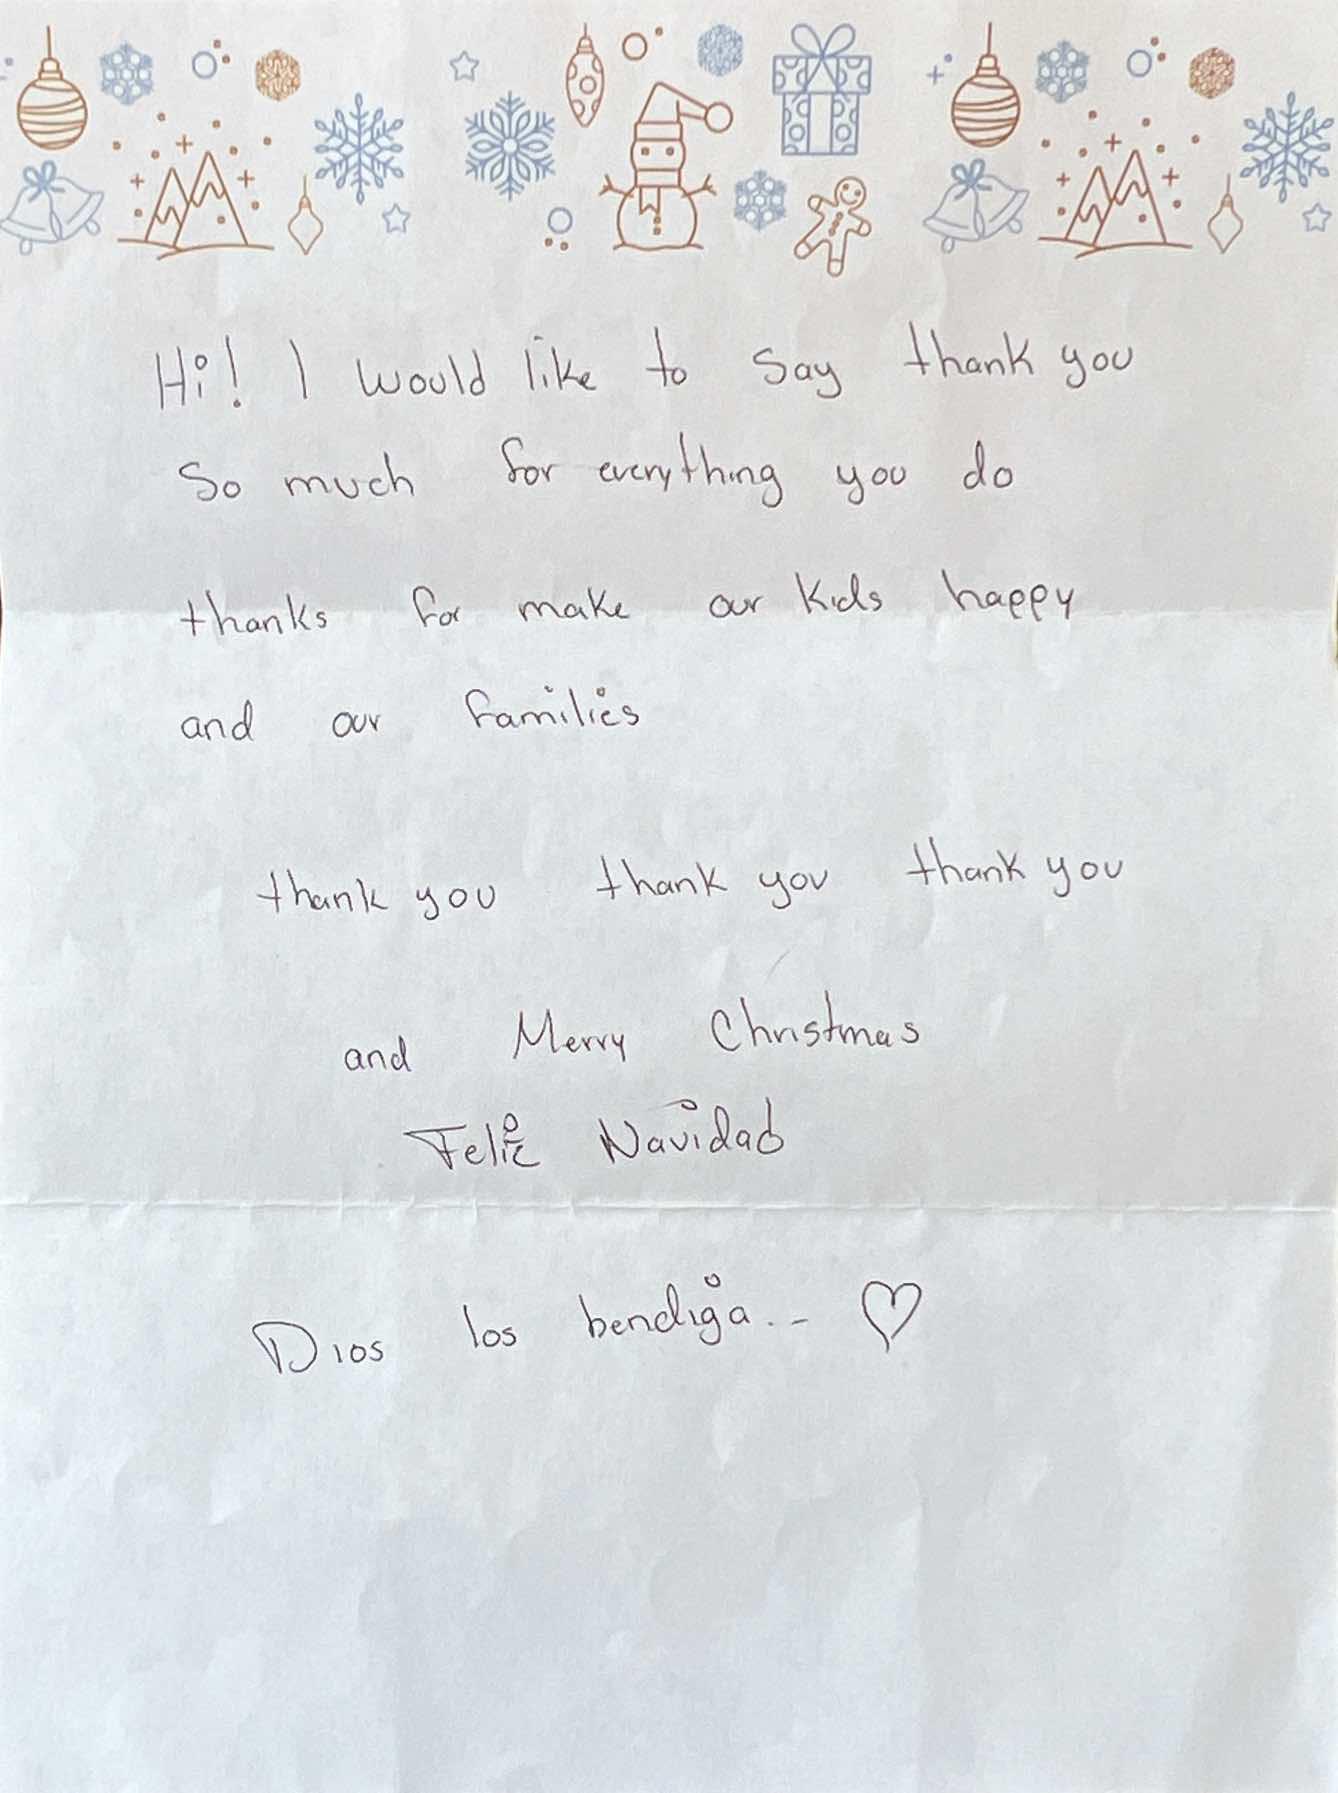 Hi! I would like to say thank you
So much for everything you do
thanks for make our kids happy
and our families
thank you thank you thank you
and Merry Christmas
Feliz Navidad
Dios los bendiga... ♡